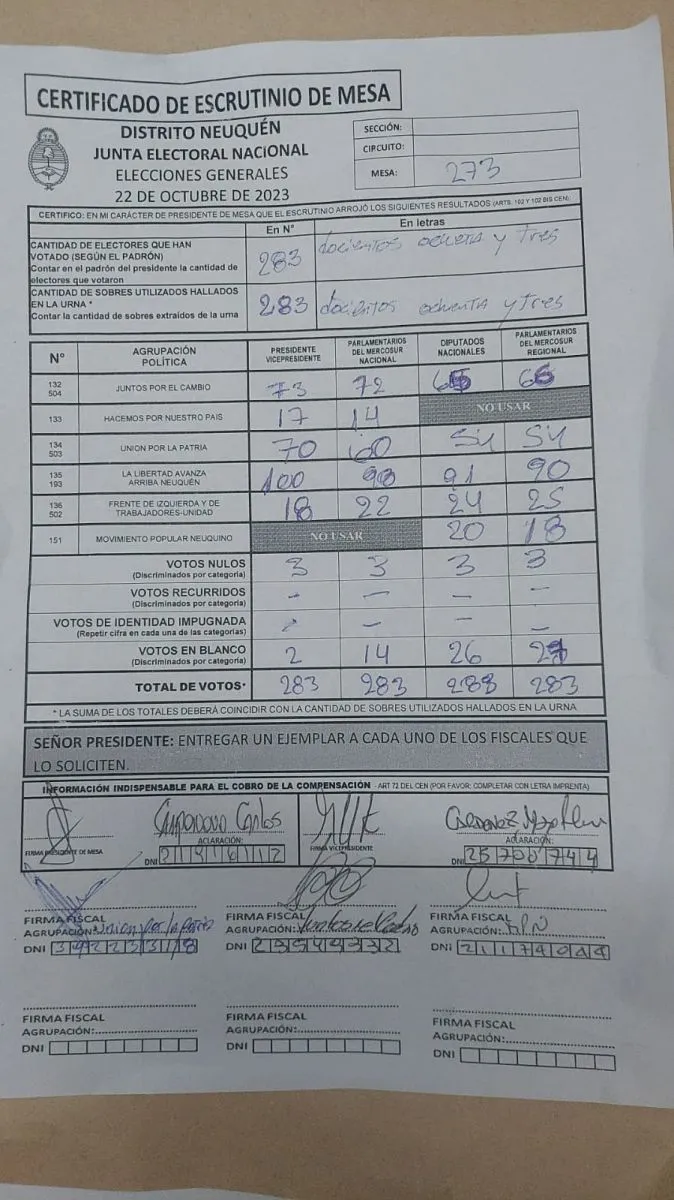 CERTIFICADO DE ESCRUTINIO DE MESA
DISTRITO NEUQUÉN
JUNTA ELECTORAL NACIONAL
ELECCIONES GENERALES
22 DE OCTUBRE DE 2023
SECCIÓN:
CIRCUITO:
MESA: 273
CERTIFICO: EN MI CARÁCTER DE PRESIDENTE DE MESA QUE EL ESCRUTINIO ARROJÓ LOS SIGUIENTES RESULTADOS (ARTS. 102 Y 102 BIS CEN):
En N° En letras
CANTIDAD DE ELECTORES QUE HAN
VOTADO (SEGÚN EL PADRÓN)
Contar en el padrón del presidente la cantidad de
electores que votaron
283 docientos ochenta y tres
CANTIDAD DE SOBRES UTILIZADOS HALLADOS
EN LA URNA *
Contar la cantidad de sobres extraídos de la urna
283 docientos ochenta y tres
N° AGRUPACIÓN POLÍTICA PRESIDENTE VICEPRESIDENTE PARLAMENTARIOS DEL MERCOSUR NACIONAL DIPUTADOS NACIONALES PARLAMENTARIOS DEL MERCOSUR REGIONAL
132 504 JUNTOS POR EL CAMBIO 73 72
133 HACEMOS POR NUESTRO PAIS 17 14 NO USAR
134 503 UNION POR LA PATRIA 70 60 54 54
135 193 LA LIBERTAD AVANZA ARRIBA NEUQUÉN 100 98 91 90
136 502 FRENTE DE IZQUIERDA Y DE TRABAJADORES-UNIDAD 18 22 24 25
151 MOVIMIENTO POPULAR NEUQUINO NO USAR 20 18
VOTOS NULOS
(Discriminados por categoría)
3 3 3 3
VOTOS RECURRIDOS
(Discriminados por categoría)
- - - -
VOTOS DE IDENTIDAD IMPUGNADA
(Repetir cifra en cada una de las categorías)
- - - -
VOTOS EN BLANCO
(Discriminados por categoría)
2 14 26
TOTAL DE VOTOS* 283 283 283
* LA SUMA DE LOS TOTALES DEBERÁ COINCIDIR CON LA CANTIDAD DE SOBRES UTILIZADOS HALLADOS EN LA URNA
SEÑOR PRESIDENTE: ENTREGAR UN EJEMPLAR A CADA UNO DE LOS FISCALES QUE
LO SOLICITEN.
INFORMACIÓN INDISPENSABLE PARA EL COBRO DE LA COMPENSACIÓN - ART 72 DEL CEN (POR FAVOR: COMPLETAR CON LETRA IMPRENTA)
Carlos
ACLARACIÓN: ACLARACIÓN:
FIRMA PRESIDENTE DE MESA DNI FIRMA VICEPRESIDENTE DNI 25700744
FIRMA FISCAL FIRMA FISCAL FIRMA FISCAL
AGRUPACIÓN: Union por la patria AGRUPACIÓN: AGRUPACIÓN:
DNI DNI DNI
FIRMA FISCAL FIRMA FISCAL FIRMA FISCAL
AGRUPACIÓN: AGRUPACIÓN: AGRUPACIÓN:
DNI DNI DNI